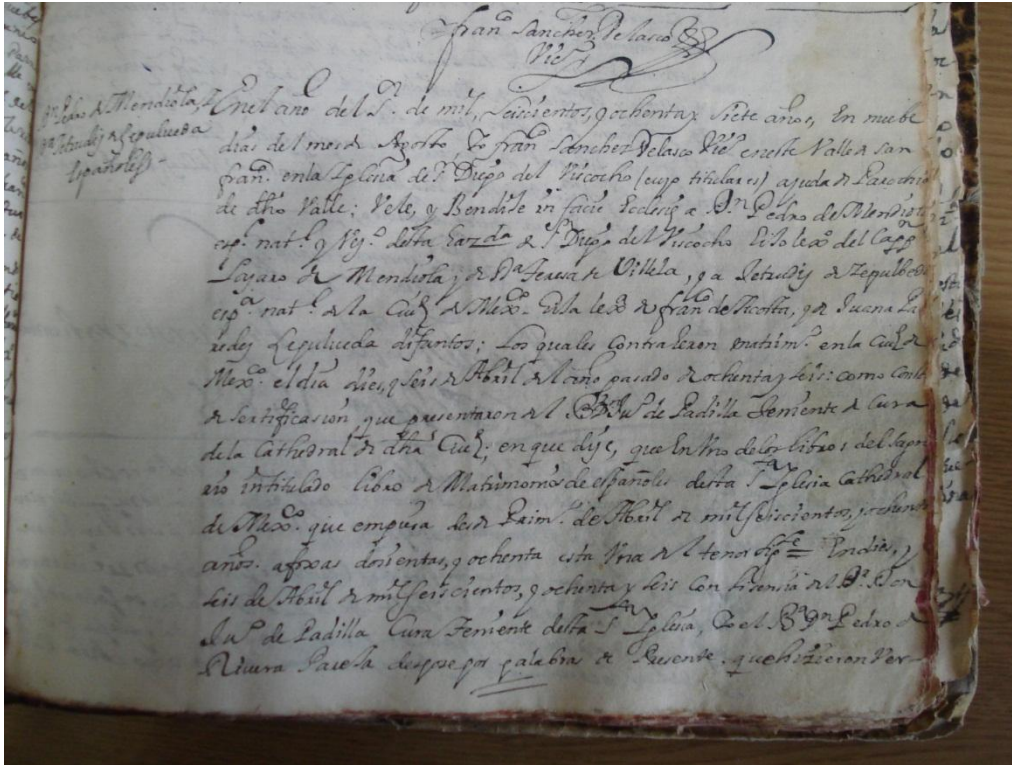 fran.co Sanchez Velasco
Vic.o
D.n Pedro de Mendiola,
Sepulueda
Españoles
En el año del S.r de mil, Seiscientos, y ochenta y siete años, En nuebe
dias del mes de Agosto Yo fran.co Sanchez Velasco Vic.o en este Valle de san
fran.co en la Iglesia de S. Diego del Viscocho (cuyo titular es) ajuda de Parochia
de dho Valle; Vele, y Bendixe in facie Eclesie a D.n Pedro de Mendiola
esp.l nat.l y Vez.o desta hazda de S. Diego del Viscocho hijo lex.o del Capp.n
Lazaro de Mendiola, y de D.a Teresa de Villela, y a Jetrudis de Zepulbeda
esp.a nat.l de la Ciud de Mex.co hija lex.a de fran.co de Acosta, y de Juana Pa
redes Sepulueda difuntos; Los quales Contraxeron matrim.o en la Ciud de
Mex.co el dia dies, y seis de Abril del año pasado de ochenta y seis: como Const
de sertificasion que presentaron del B.r Ju.o de Padilla Teniente de Cura
de la Cathedral de dha Ciud; en que dise, que En Vno de los libros del Sagra
rio intitulado libro de Matrimonios de españoles desta S.ta Iglesia Cathedral
de Mex.co que empiesa desde Prim.o de Abril de mil seiscientos, y ochenta
años. afoxas dosientas, y ochenta esta Vna del tenor sig.te = En dies, y
seis de Abril de mil seiscientos, y ochenta y seis con lisensia del B.r Don
Ju.o de Padilla Cura Teniente desta S.ta Iglesia, Yo el B.r D.n Pedro de
Rivera despose por palabra de Presente. que hizieron Ver-